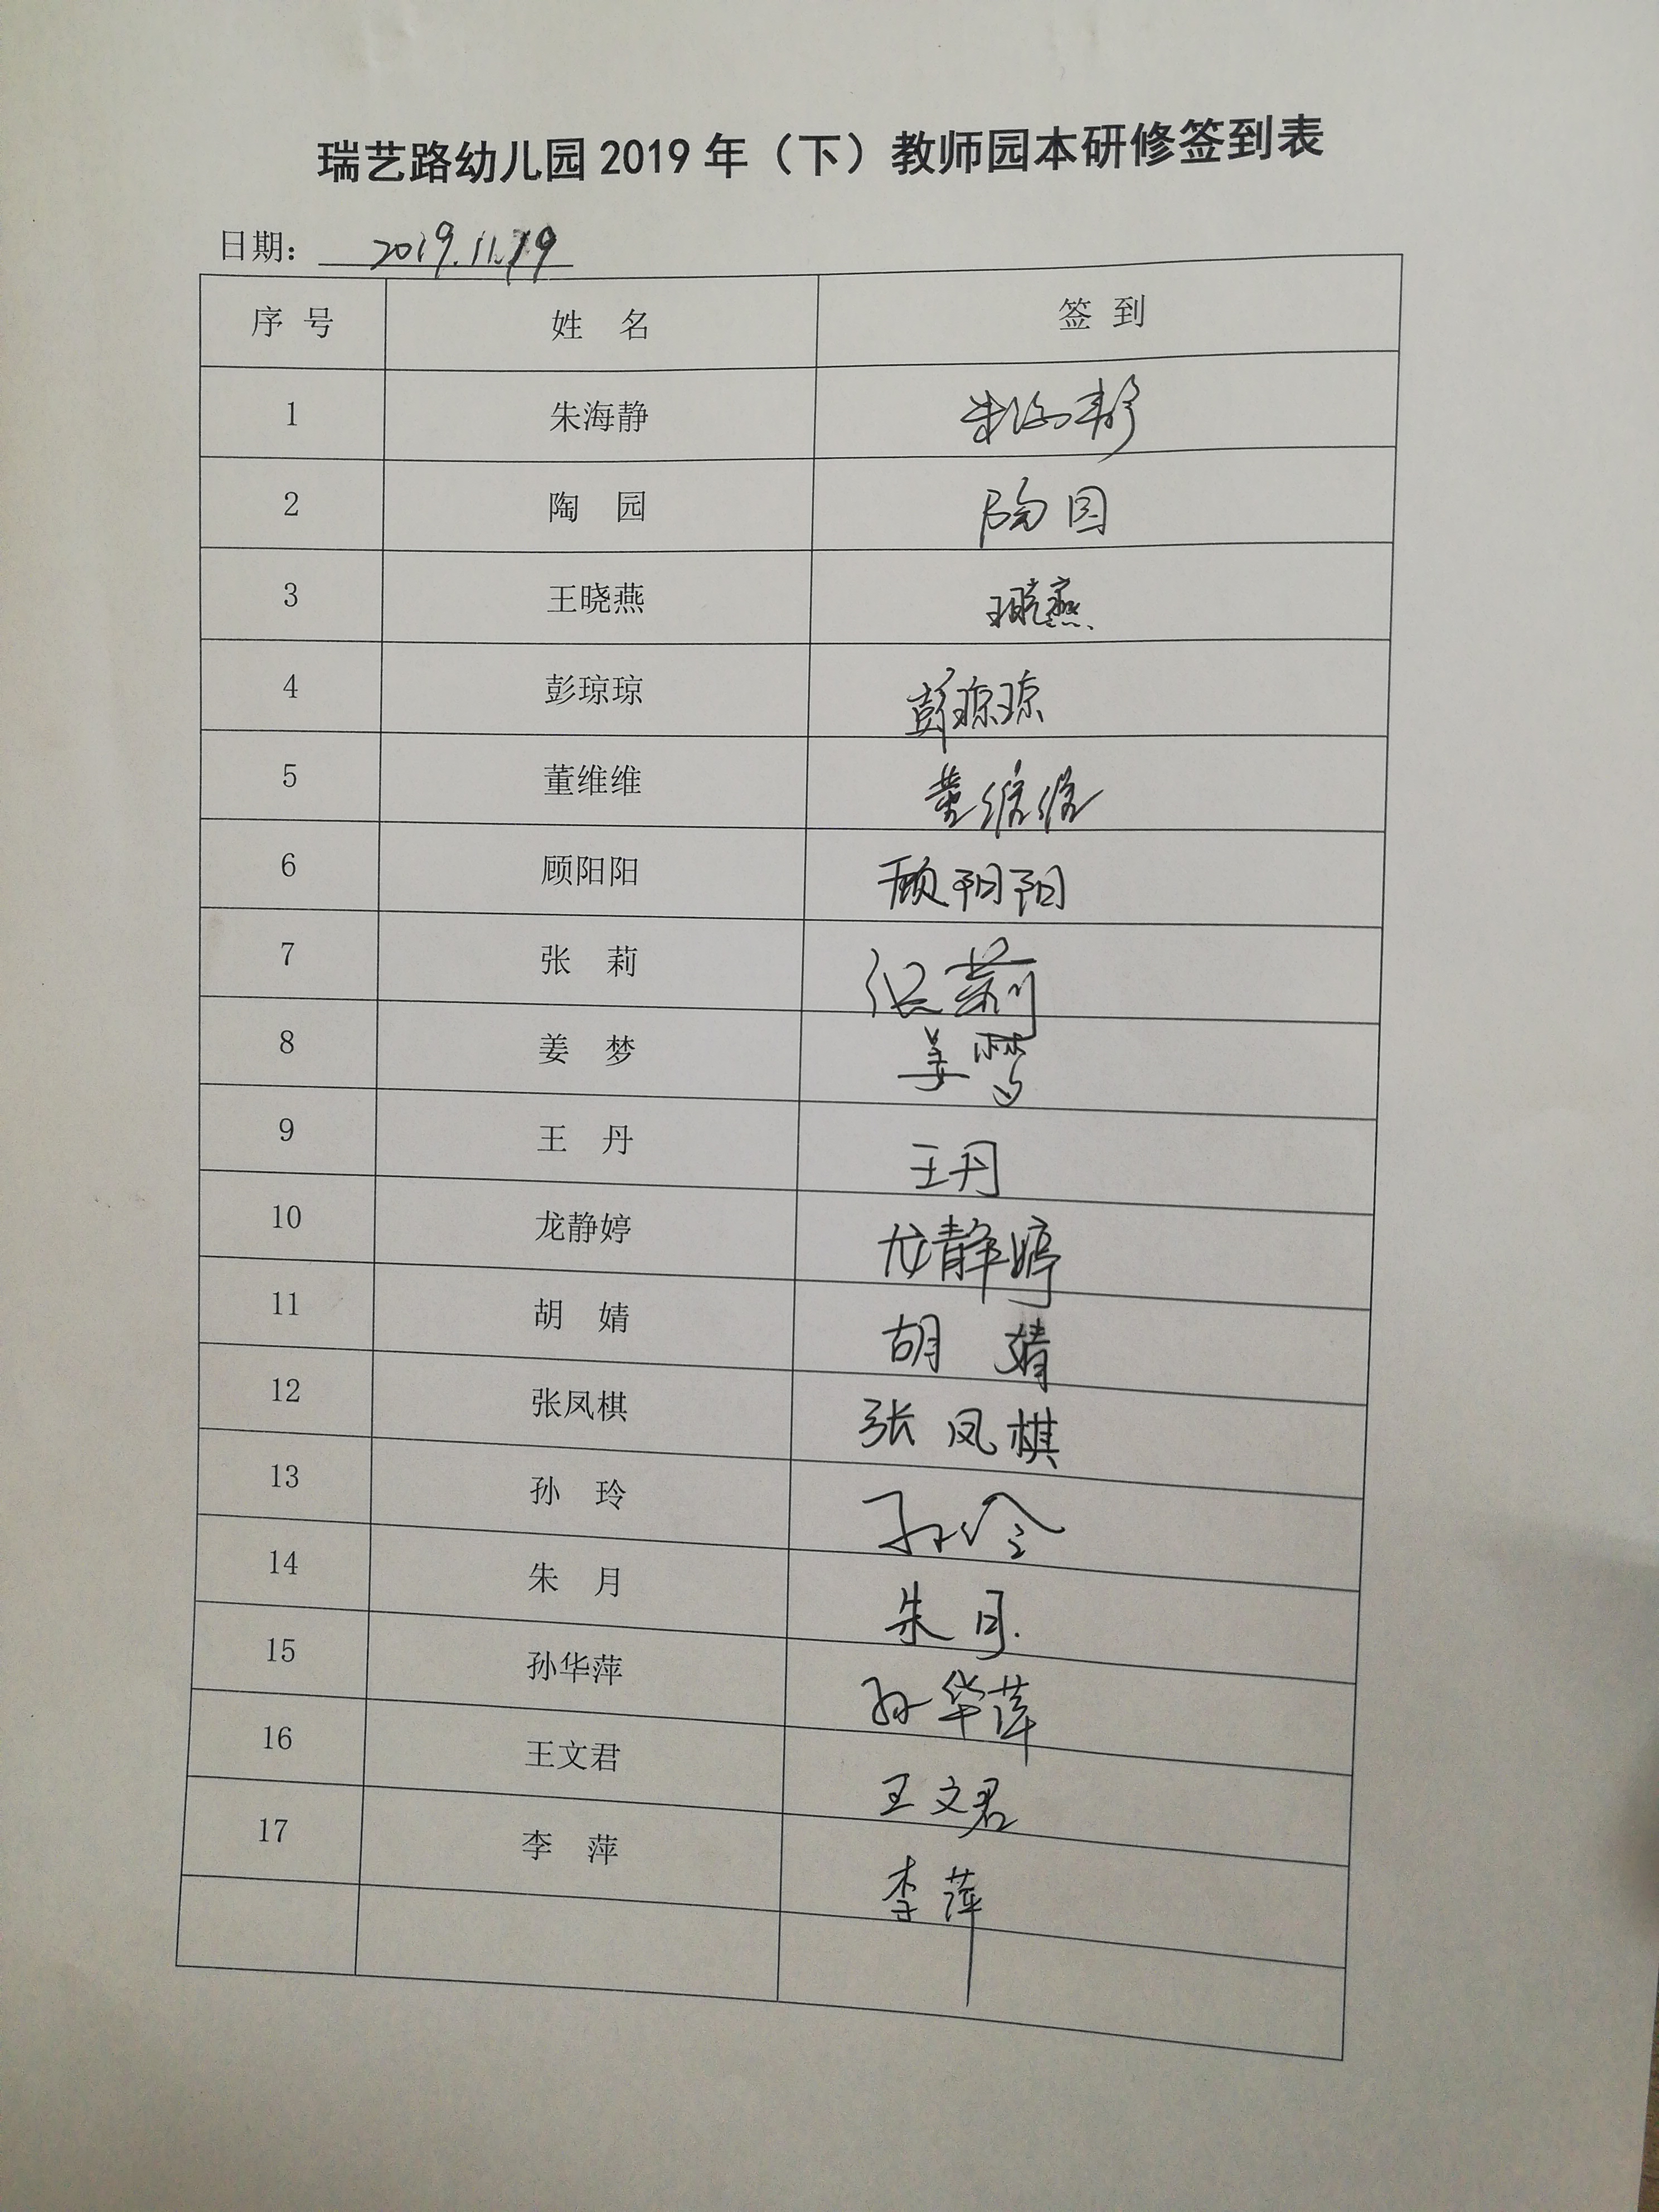 瑞艺路幼儿园2019年（下）教师园本研修签到表
日期： 2019.11.19
序 号 姓 名 签 到
1 朱海静 朱海静
2 陶 园 陶园
3 王晓燕 王晓燕
4 彭琼琼 彭琼琼
5 董维维 董维维
6 顾阳阳 顾阳阳
7 张 莉 张莉
8 姜 梦 姜梦
9 王 丹 王丹
10 龙静婷 龙静婷
11 胡 婧 胡 婧
12 张凤棋 张凤棋
13 孙 玲 孙玲
14 朱 月 朱月.
15 孙华萍 孙华萍
16 王文君 王文君
17 李 萍 李萍